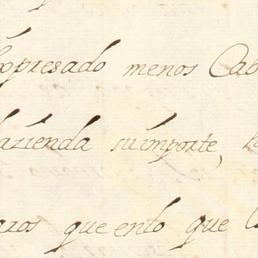 expresado menos Cab
hazienda su importe,
que enlo que